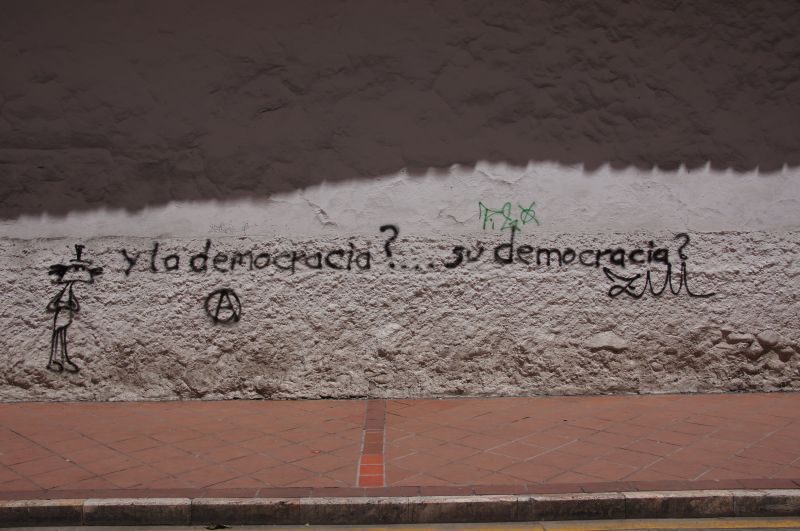 y la democracia?.... su democracia?
A